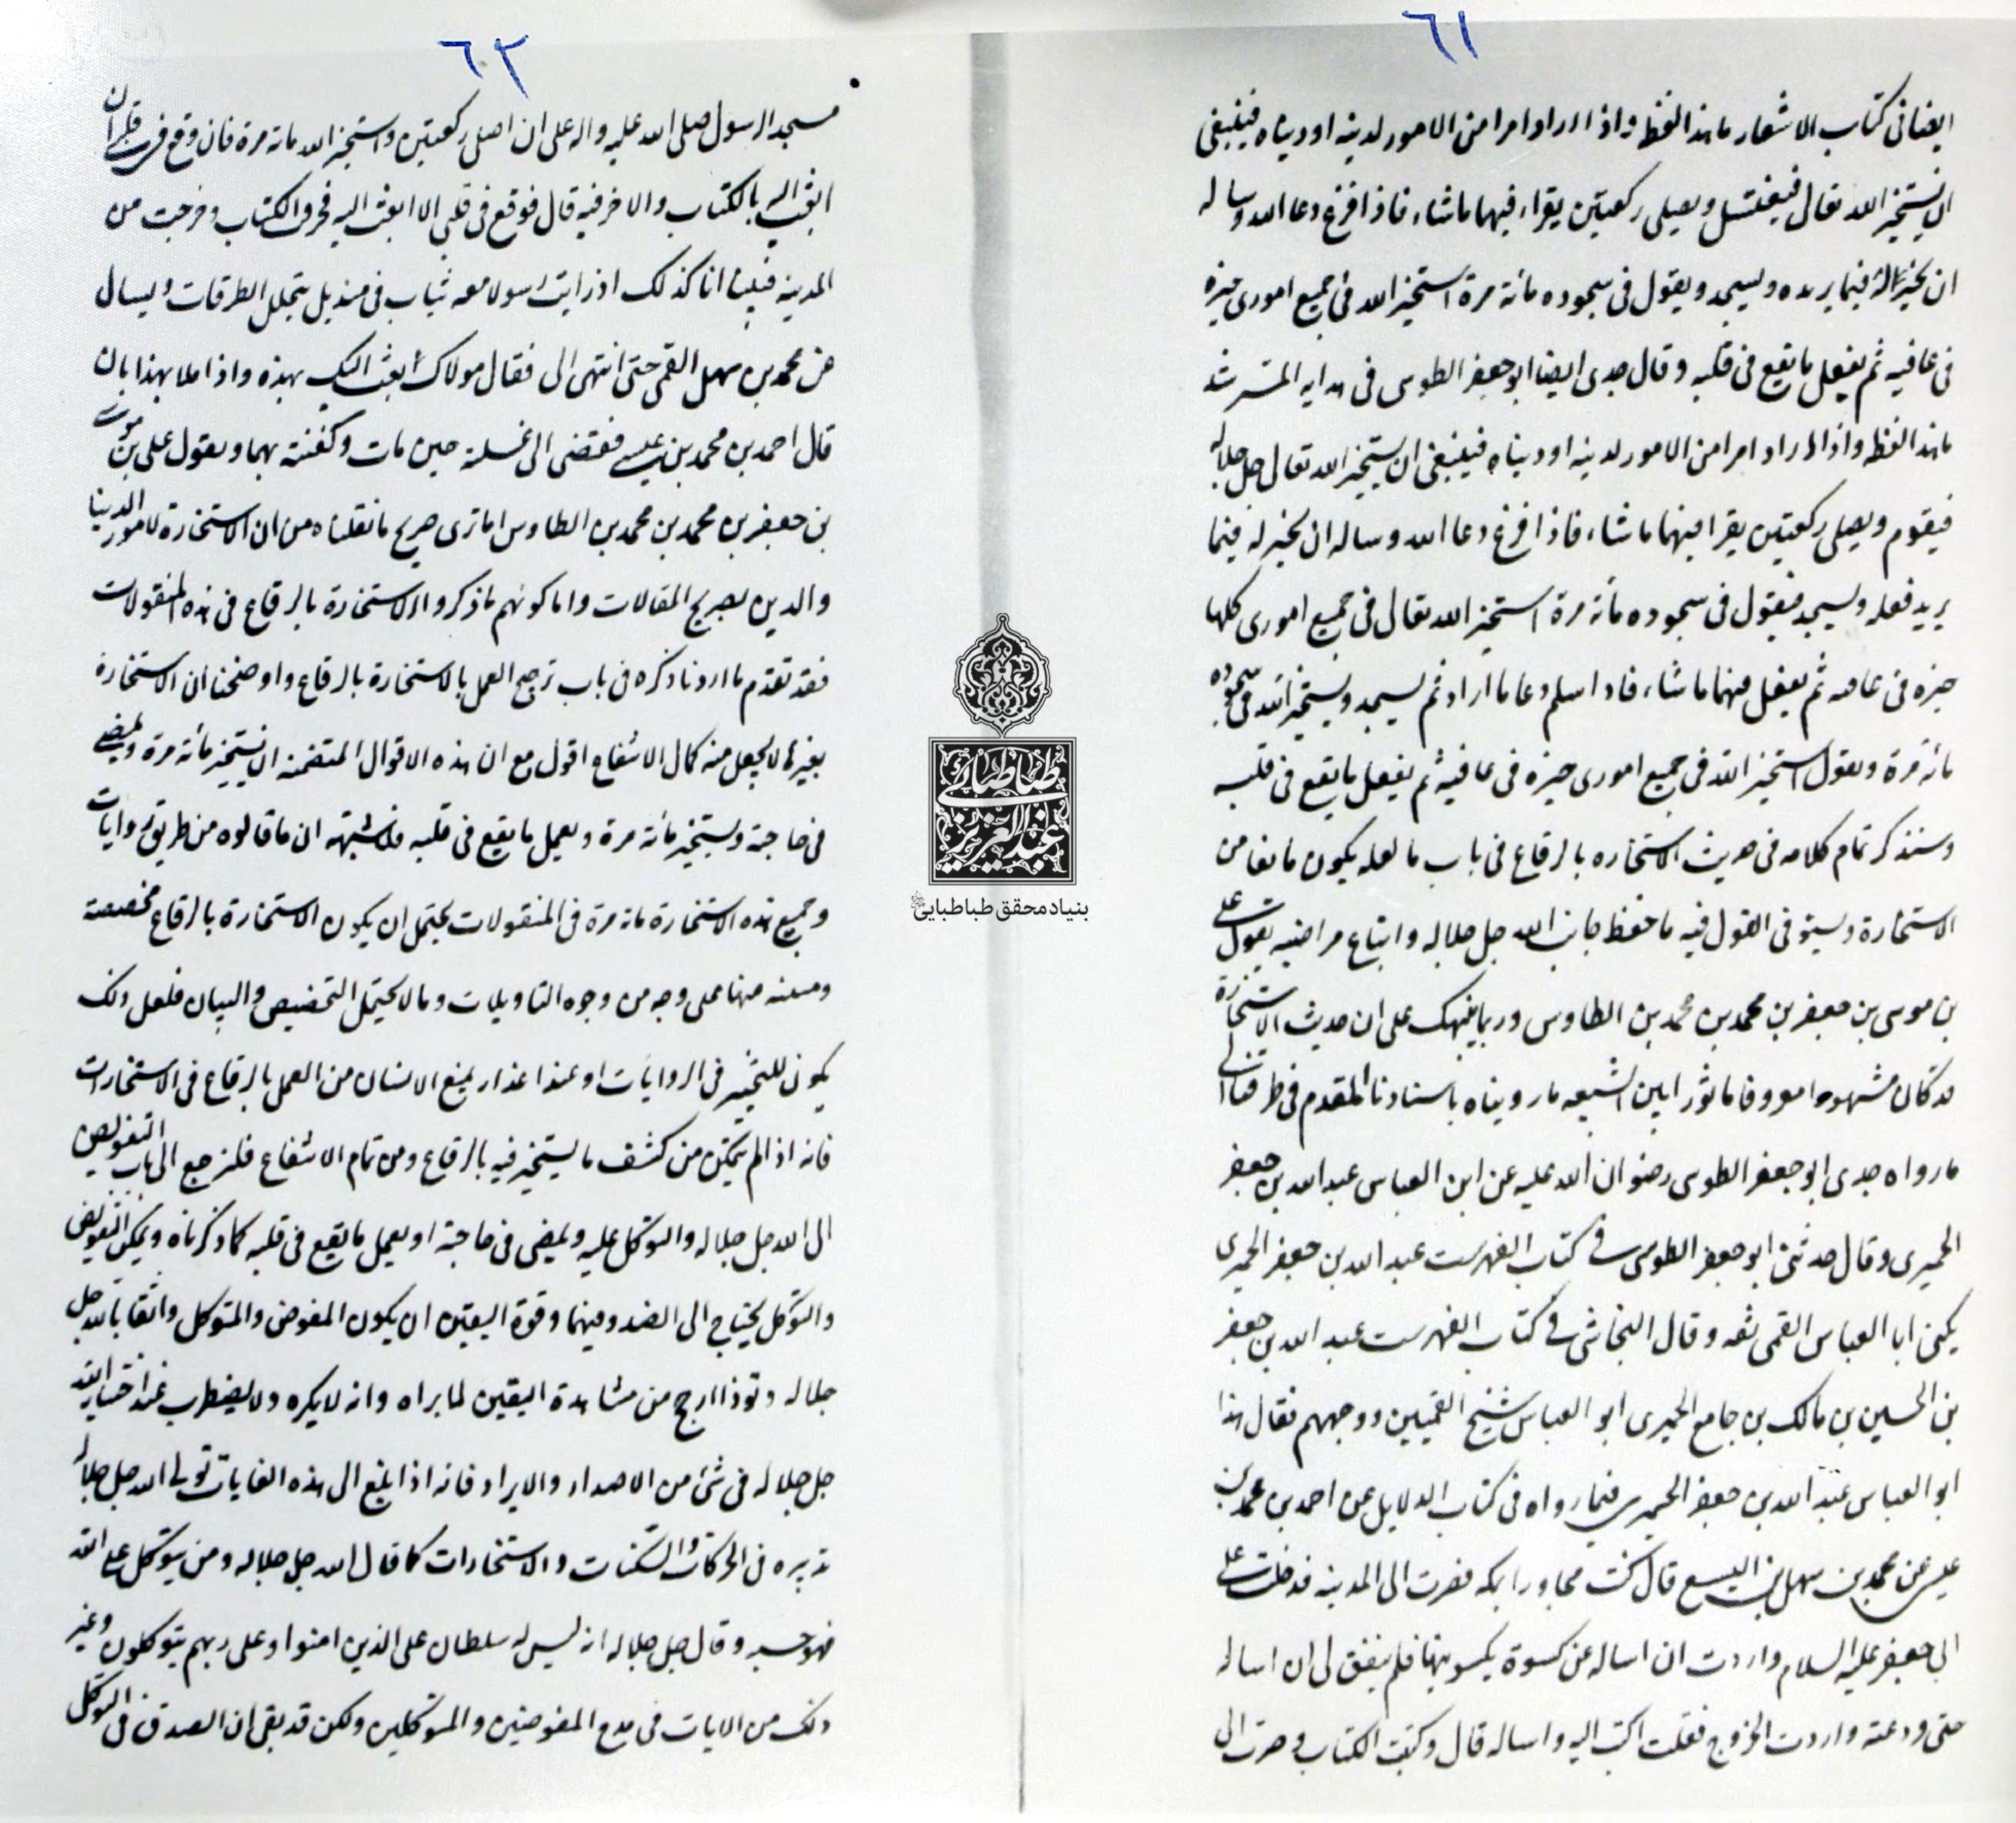 ٦١
ايضا فى كتاب الاشعار ما هذا لفظه واذا اراد امرا من الامور لدينه او دنياه فينبغى
ان يستخير الله تعالى فيغتسل ويصلى ركعتين يقراء فيهما ماشاء فاذا فرغ دعا الله وساله
ان يخير له فيما يريده ويسجد ويقول فى سجوده مائة مرة استخير الله فى جميع امورى خيرة
فى عافيه ثم يفعل ما يقع فى قلبه وقال جدى ايضا ابو جعفر الطوسى فى هدايه المسترشد
ما هذا لفظه واذا اراد امرا من الامور لدينه او دنياه فينبغى ان يستخير الله تعالى جل جلاله
فيقوم ويصلى ركعتين يقرا فيهما ما شاء فاذا فرغ دعا الله وساله ان يخير له فيما
يريد فعله ويسجد فيقول فى سجوده مائة مرة استخير الله تعالى فى جميع امورى كلها
خيره فى عافيه ثم يفعل فيهما ما شاء فاذا سلم دعا ما اراد ثم يسجد ويستخير الله فى سجوده
مائة مرة ويقول استخير الله فى جميع امورى خيرة فى عافية ثم يفعل ما يقع فى قلبه
وسنذكر تمام كلامه فى حديث الاستخاره بالرقاع فى باب ما لعله يكون مانعا من
الاستخارة ويستوفى القول فيه ما حفظ جانب الله جل جلاله واتباع مراضيه يقول على
بن موسى بن جعفر بن محمد بن محمد بن الطاوس وربما ينبهك على ان حديث الاستخارة
قد كان مشهورا معروفا ماثورا بين الشيعه ما رويناه باسنادنا المقدم فى طرقنا الى
ما رواه جدى ابو جعفر الطوسى رضوان الله عليه عن ابن العباس عبد الله بن جعفر
الحميرى وقال حدثنى ابو جعفر الطوسى فى كتاب الفهرست عبد الله بن جعفر الحميرى
يكنى ابا العباس القمى ثقه وقال النجاشى فى كتاب الفهرست عبد الله بن جعفر
بن الحسين بن مالك بن جامع الحميرى ابو العباس شيخ القميين ووجههم فقال هذا
ابو العباس عبد الله بن جعفر الحميرى فيما رواه فى كتاب الدلايل عن احمد بن محمد بن
عيسى عن محمد بن سهل بن اليسع قال كنت مجاورا بمكه فصرت الى المدينه فدخلت على
ابى جعفر عليه السلام واردت ان اساله عن كسوة يكسونيها فلم يتفق لى ان اساله
حتى ودعته واردت الخروج فقلت اكتب اليه واساله قال وكتبت الكتاب وصرت الى
٦٢
مسجد الرسول صلى الله عليه واله على ان اصلى ركعتين واستخير الله مائة مرة فان وقع فى قلبى ان
ابعث اليه بالكتاب والا خرقته قال فوقع فى قلبى الا ابعث اليه فخرقت الكتاب وخرجت من
المدينه فبينا انا كذلك اذ رايت رسولا معه ثياب فى منديل يتخلل الطرقات ويسال
عن محمد بن سهل القمى حتى انتهى الى فقال مولاك بعث اليك بهذه واذا ملاءتان
قال احمد بن محمد بن عيسى فقضى الى غسلته حين مات وكفنته بهما ويقول على بن موسى
بن جعفر بن محمد بن محمد بن الطاوس اما ترى صريح ما نقلناه من ان الاستخارة لامور الدنيا
والدين بصريح المقالات واما كونهم ما ذكروا الاستخارة بالرقاع فى هذه المنقولات
فقد تقدم ما اردنا ذكره فى باب ترجيح العمل بالاستخارة بالرقاع واوضحنا ان الاستخارة
بغيرها لا يحصل منه كمال الانتفاع اقول مع ان هذه الاقوال المتضمنه ان يستخير مائة مرة ويمضى
فى حاجته ويستخير مائة مرة ويعمل ما يقع فى قلبه وما اشبهه ان ما قالوه من طريق روايات
وجميع هذه الاستخارة مائة مرة فى المنقولات يحتمل ان يكون الاستخارة بالرقاع مخصصة
ومبينه منها على وجه من وجوه التاويلات وما لا يحتمل التخصيص والبيان فلعل ذلك
يكون للتخيير فى الروايات او عند اعذار يمنع الانسان من العمل بالرقاع فى الاستخارات
فانه اذا لم يتمكن من كشف ما يستخير فيه بالرقاع ومن تمام الانتفاع فليرجع الى باب التفويض
الى الله جل جلاله والتوكل عليه ويمضى فى حاجته او يعمل ما يقع فى قلبه كما ذكرناه ويمكن التفويض
والتوكل يحتاج الى الصدق فيهما وقوة اليقين ان يكون المفوض والمتوكل واثقا بالله جل
جلاله وتوذا ارجح من مشاهدة اليقين لما يراه وانه لا يكره ولا يضطرب عند اختيار الله
جل جلاله فى شئ من الاصدار والايراد فانه اذا بلغ الى هذه الغايات تولى الله جل جلاله
تدبيره فى الحركات والسكنات والاستخارات كما قال الله جل جلاله ومن يتوكل على الله
فهو حسبه وقال جل جلاله انه ليس له سلطان على الذين امنوا وعلى ربهم يتوكلون وغير
ذلك من الايات فى مدح المفوضين والمتوكلين ولكن قد بقى ان الصدق فى التوكل
طباطبائى
عبدالعزيز
بنیاد محقق طباطبایی